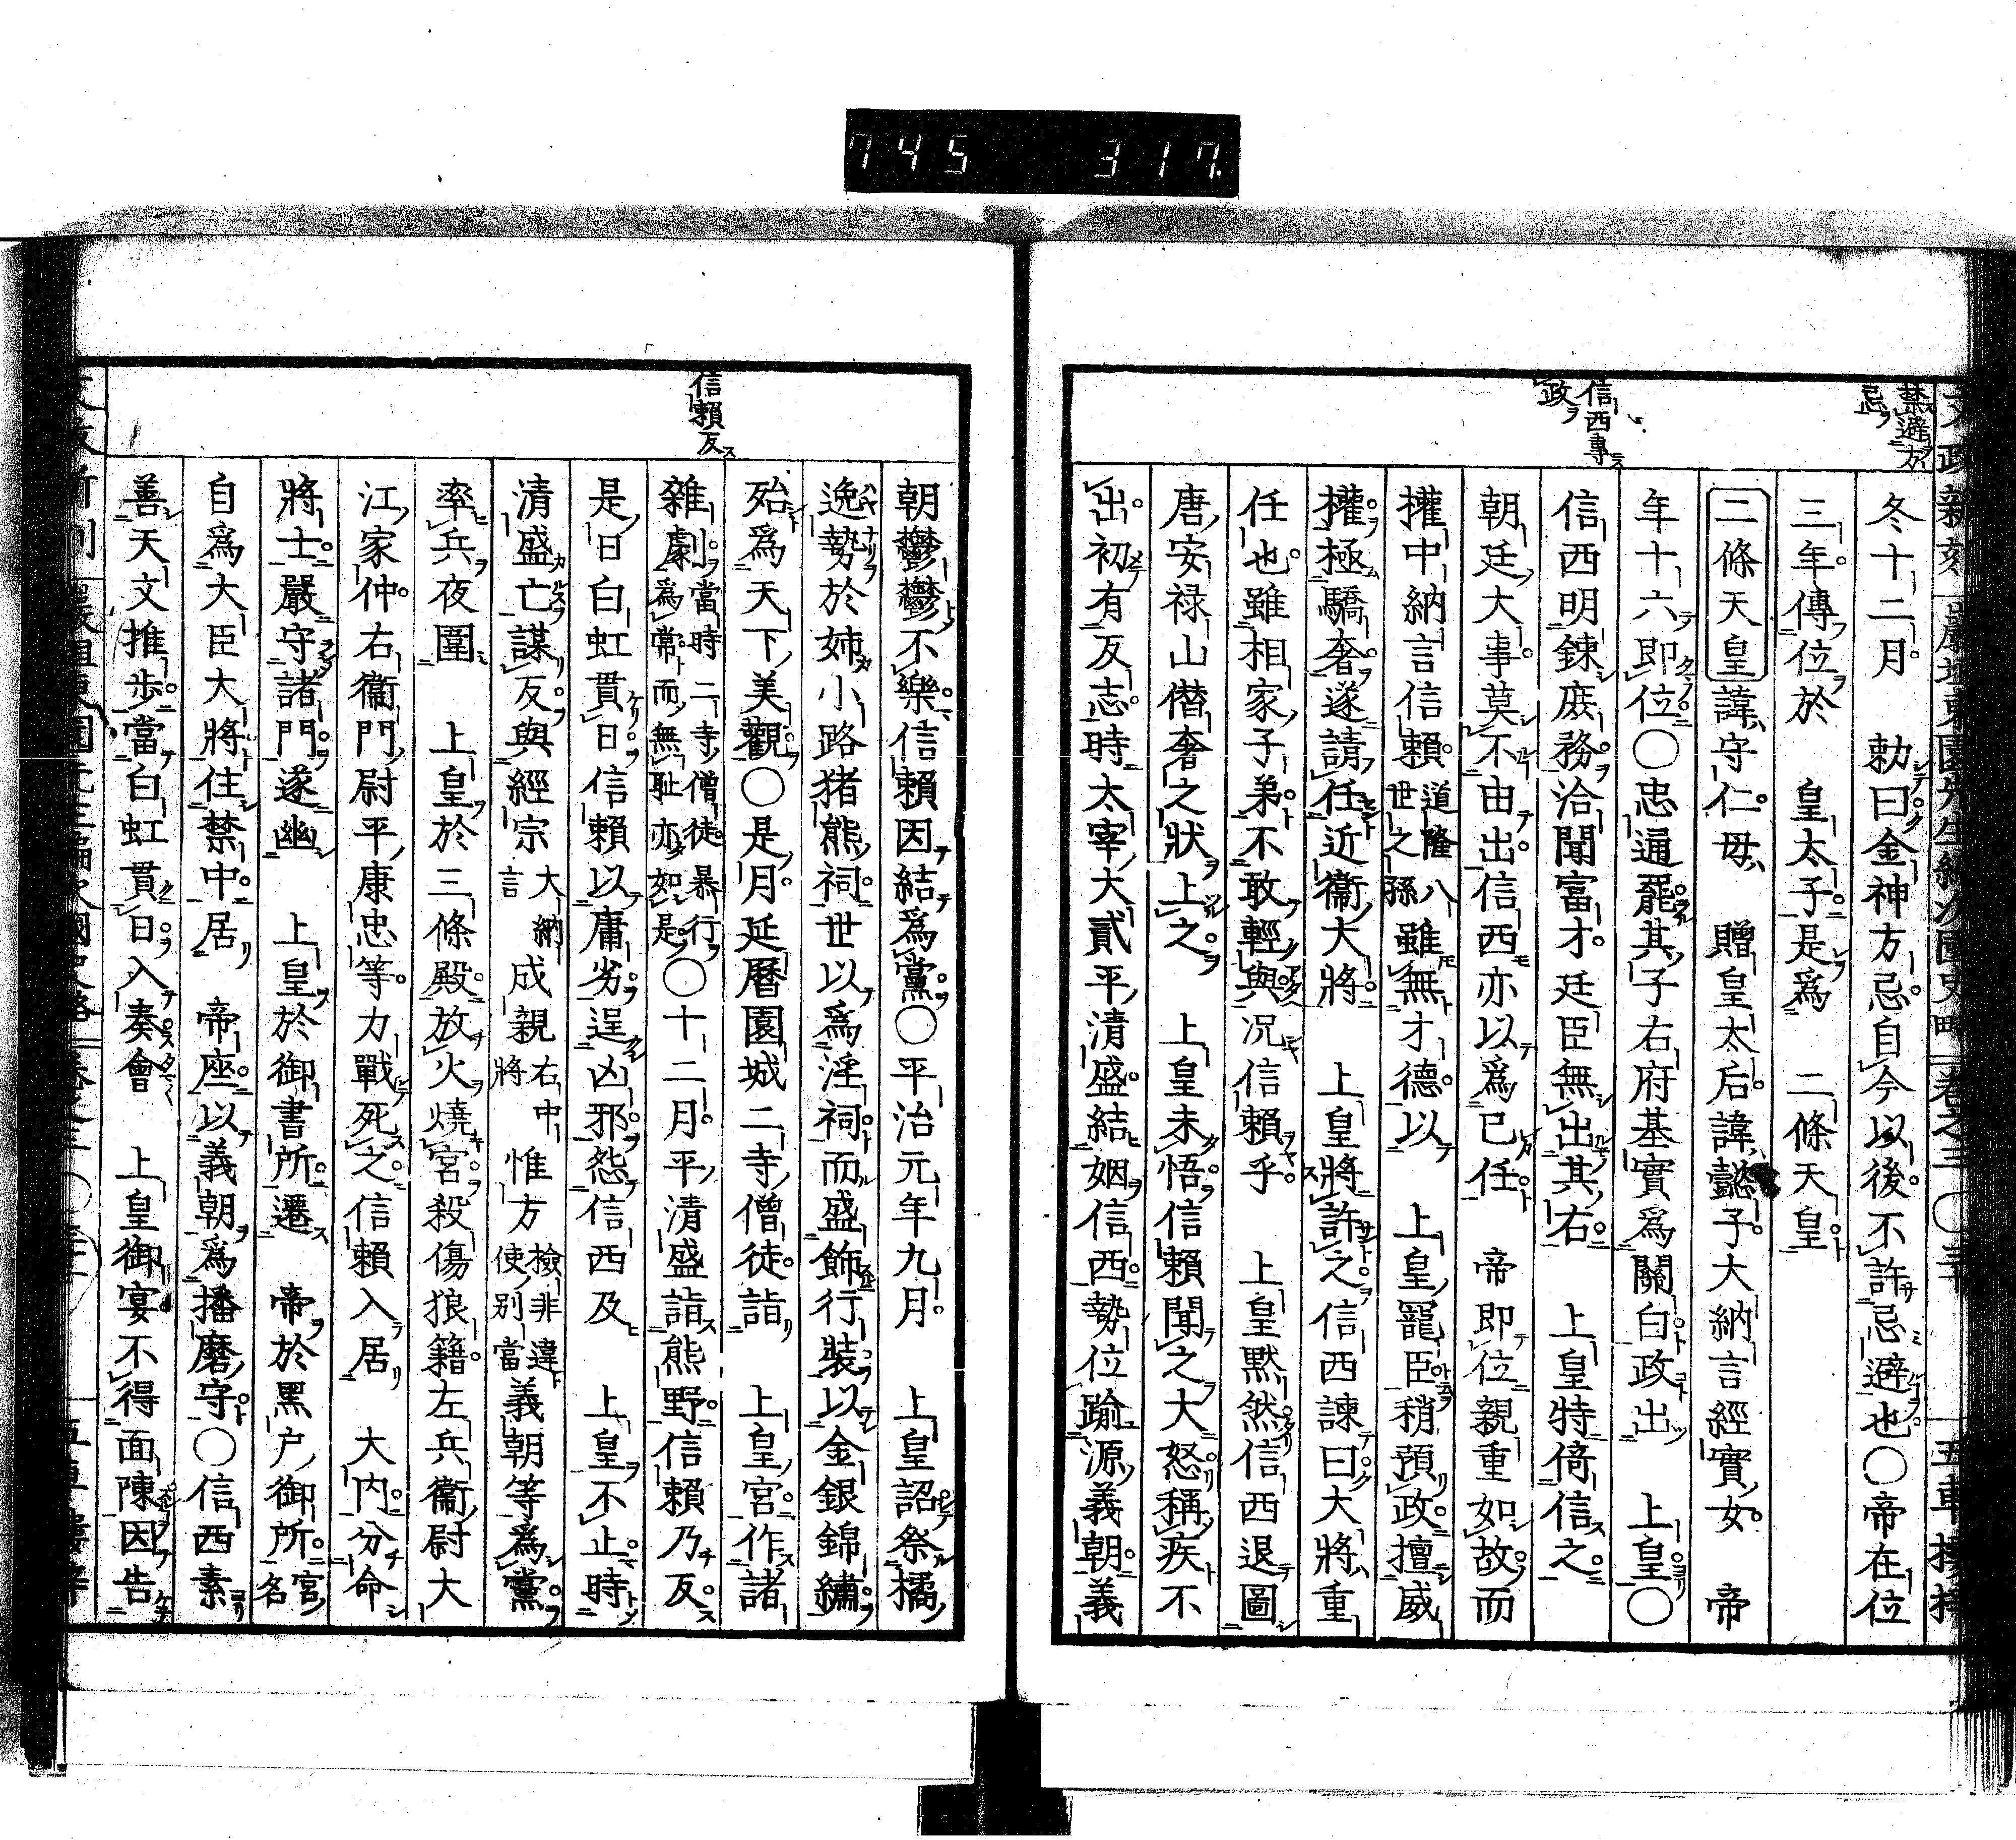 745 317.
禁避方
忌
信西專
政
冬十二月　勅曰金神方忌自今以後不許忌避也〇帝在位
三年傳位於　皇太子是爲　二條天皇
二條天皇諱守仁母　贈皇太后諱懿子大納言經實女　帝
年十六即位〇忠通罷其子右府基實爲關白政出　上皇〇
信西明鍊庶務洽聞富才廷臣無出其右　上皇特倚信之
朝廷大事莫不由出信西亦以爲己任　帝即位親重如故而
權中納言信賴道隆八世之孫雖無才德以　上皇寵臣稍預政擅威
權極驕奢遂請任近衞大將　上皇將許之信西諫曰大將重
任也雖相家子弟不敢輕與況信賴乎　上皇默然信西退圖
唐安禄山僭奢之狀上之　上皇未悟信賴聞之大怒稱疾不
出初有反志時太宰大貳平清盛結姻信西勢位踰源義朝義
信賴反
朝鬱鬱不樂信賴因結爲黨〇平治元年九月　上皇詔祭橘
逸勢於姉小路猪熊祠世以爲淫祠而盛飾行裝以金銀錦繡
殆爲天下美觀〇是月延曆園城二寺僧徒詣　上皇宮作諸
雜劇當時二寺僧徒暴行爲常而無耻亦如是〇十二月平清盛詣熊野信賴乃反
是日白虹貫日信賴以庸劣逞凶邪怨信西及　上皇不止時
清盛亡謀反與經宗大納言成親右中將惟方檢非違使別當義朝等爲黨
率兵夜圍　上皇於三條殿放火燒宮殺傷狼籍左兵衞尉大
江家仲右衞門尉平康忠等力戰死之信賴入居　大内分命
將士嚴守諸門遂幽　上皇於御書所遷　帝於黑戶御所宮名
自爲大臣大將住禁中居　帝座以義朝爲播磨守〇信西素
善天文推步當白虹貫日入奏會　上皇御宴不得面陳因告